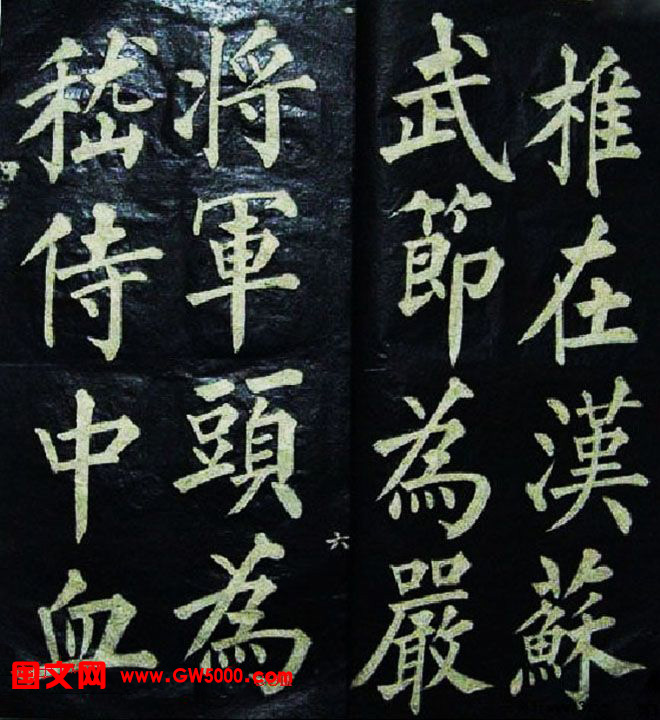 椎在漢蘇
武節為嚴
將軍頭為
嵇侍中血
六
图文网 www.GW5000.com